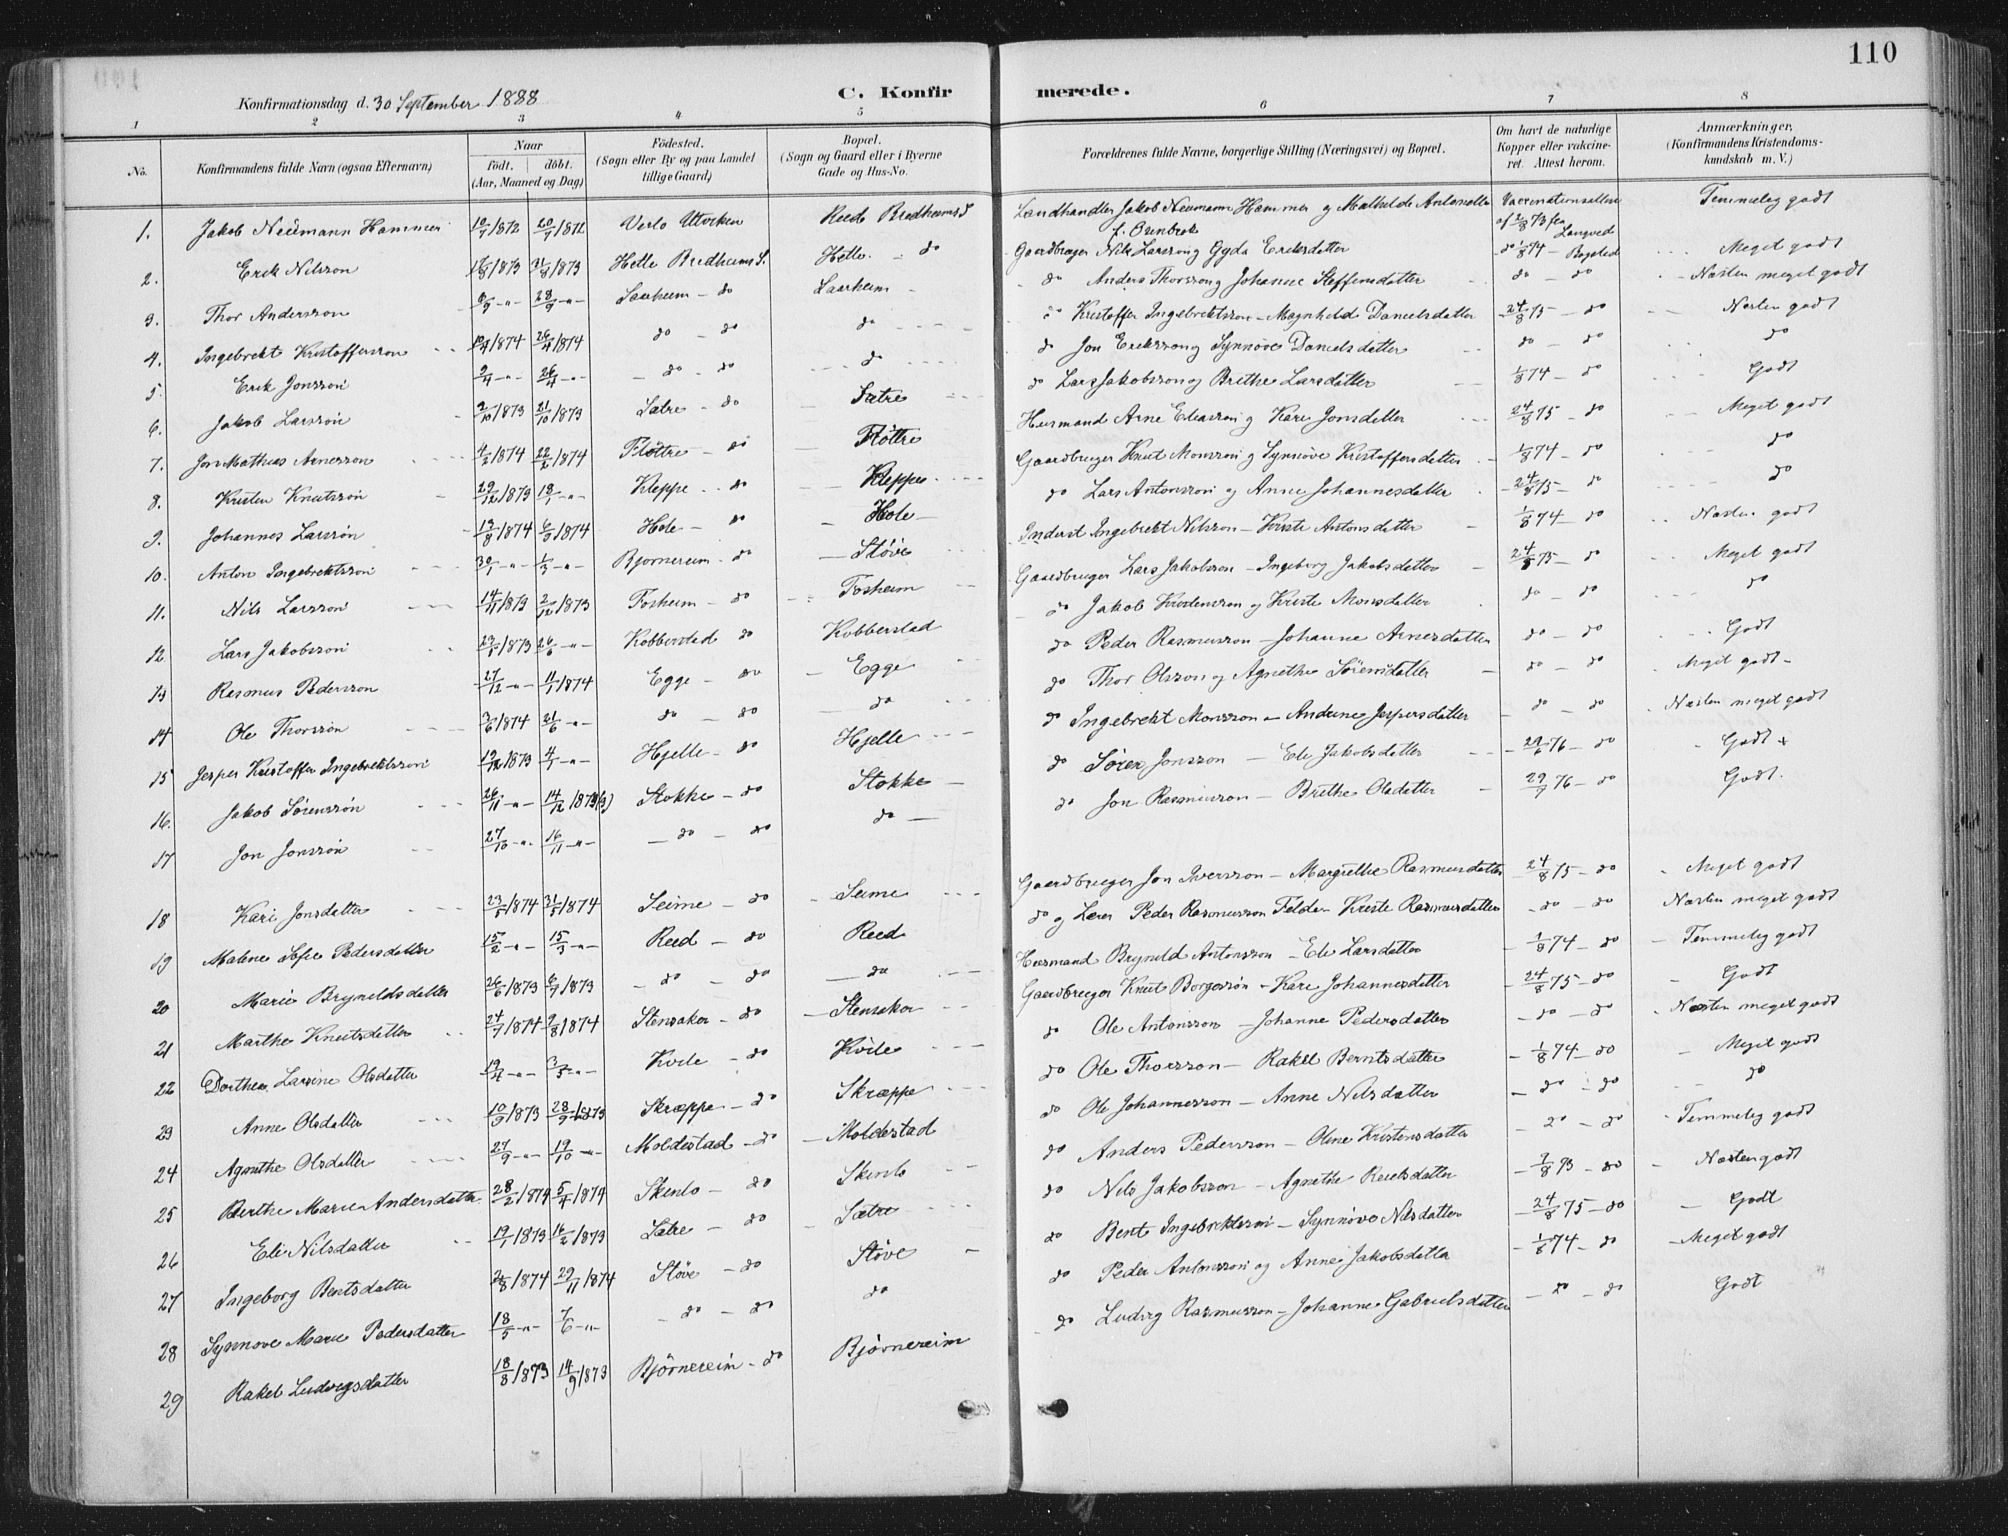 110
Konfirmationsdag d. 30 September 1888
C. Konfirmerede.
1 2 3 4 5 6 7 8
No. Konfirmandens fulde Navn (ogsaa Efternavn) Naar födt. döbt. (Aar, Maaned og Dag) Födested. (Sogn eller By og paa Landet tillige Gaard) Bopæl. (Sogn og Gaard eller i Byerne Gade og Hus-No. Forældrenes fulde Navne, borgerlige Stilling (Næringsvei) og Bopæl. Om havt de naturlige Kopper eller vakcineret. Attest herom. Anmærkninger, (Konfirmandens Kristendomskundskab m. V.)
1. Jakob Neümann Hammer 10/7/1872 20/7/1872 Utviken Reed Bredheims S Landhandler Jakob Neumann Hammer og Mathilde f. Vaccinationsattest af 2/8 73 fra Temmelig godt
2. Erik Nilsson 17/8/1873 31/8/1873 Hetle Bredheims S. Hetle do Gaardbruger Nils Larsson og Gyda Eriksdatter do 1/8 74 Meget godt
3. Thor Andersson 6/9 -"- 28/9 -"- Laarheim - do Laarheim - do Anders Thorsson og Johanne Steffensdatter do - do Næsten meget godt
4. Ingebrekt Kristoffersson 12/4/1874 26/4/1874 do - do do do Kristoffer Ingebrektsson - Magnhild Danielsdatter 24/8 75 - do Næsten godt
5. Erik Jonsson 2/4 -"- 26/4 -"- do - do do do Jon Eriksson og Synnöve Danielsdatter do - do do
6. Jakob Larssön 2/10/1873 21/10/1873 Sætre - do Sætre do Lars Jakobsson og Brithe Larsdatter 1/8 74 - do Godt
7. Jon Mathias Arnesson 4/2/1874 22/2/1874 Flöttre - do Flöttre Husmand Arne Eliasson og Kari Jonsdatter 24/8 75 - do Meget godt
8. Kristen Knutssön 29/12/1873 18/1 -"- Kleppe - do Kleppe Gaardbruger Knut Monsson og Synnöve Kristoffersdatter 1/8 74 - do do
9. Johannes Larssön 13/8/1874 6/9/1874 Hole - do Hole do Lars Antonsson og Anne Johannesdatter 24/8 75 - do do
10. Anton Ingebrektsson 30/1 -"- 1/3 -"- Bjornereim - do Støve Inderst Ingebrekt Nilsson - Kriste Antonsdatter 1/8 74 - do Næsten godt
11. Nils Larsson 14/11/1873 2/12/1873 Fosheim - do Fosheim Gaardbruger Lars Jakobson - Ingeborg Jakobsdatter 24/8 75 - do Meget godt
12. Lars Jakobsson 23/5/1873 26/6 -"- Kobberstad do Kobberstad do Jakob Kristensson og Kriste Monsdatter do - do do
13 Rasmus Pedersson 27/12 -"- 11/1/1874 Egge - do Egge do Peder Rasmusson - Johanne Arnesdatter do - do Godt
14 Ole Thorssön 3/6/1874 21/6 -"- do - do do do Thor Olsson og Agnethe Sörensdatter do - do Meget godt
15 Jesper Kristoffer Ingebrektsson 19/12/1873 4/1 -"- Hjelle - do Hjelle do Ingebrekt Monsson - Andrine Jespersdatter do - do Næsten meget godt
16. Jakob Sörenssön 26/11 -"- 14/12/1873 Stokke - do Stokke do Sören Jonsson - Eli Jakobsdatter 29/6 76 - do Godt
17 Jon Jonssön 27/10 -"- 16/11 -"- do - do do do Jon Rasmusson - Brithe Olsdatter 29/7 76 - do Godt.
18 Kari Jonsdatter 23/5/1874 31/5/1874 Seime - do Seime Gaardbruger Jon Iversson - Margrethe Rasmusdatter 24/8 75 - do Meget godt
19 Malene Sofie Pedersdatter 15/2 -"- 15/3 -"- Reed - do Reed do og Lærer Peder Rasmusson Felde - Kriste Rasmusdatter do - do Næsten meget godt
20 Marie Bryneldsdatter 26/6/1873 6/7/1873 do - do do Husmand Bryneld Antonsson - Eli Larsdatter 1/8 74 - do Temmelig godt
21 Marthe Knutsdatter 24/7/1874 9/8/1874 Stensaker - do Stensaker Gaardbruger Knut Borgessön - Kari Johannesdatter 24/8 75 - do Godt
22 Dorthea Larsine Olsdatter 19/4 -"- 3/5 -"- Kvile - do Kvile do Ole Antonsson - Johanne Pedersdatter do - do Næsten meget godt
23 Anne Olsdatter 10/9/1873 28/9/1873 Skræppe - do Skræppe do Ole Thorsson - Rakel Berntsdatter 1/8 74 - do Meget godt
24 Agnethe Olsdatter 27/9 -"- 19/10 -"- Moldestad - do Moldestad do Ole Johannesson - Anne Nilsdatter do - do do
25 Berthe Marie Andersdatter 28/2/1874 5/4/1874 Skinlo - do Skinlo do Anders Pedersson - Oline Kristensdatter do - do Temmelig godt
26 Eli Nilsdatter 19/1/1873 16/2/1873 Sætre - do Sætre do Nils Jakobsson - Agnethe 2/8 73 - do Næsten godt
27 Ingeborg Bentsdatter 1874 29/11/1874 Støve - do Støve do Bent Ingebrektsson - Synnöve Nilsdatter 24/8 75 - do Godt
28 Synnove Marie Pedersdatter 18/5 -"- 7/6 -"- do - do do do Peder Antonsson og Anne Jakobsdatter 1/8 74 - do Meget godt
29 Rakel Ludvigsdatter 18/8/1873 14/9/1873 Björnereim - do Bjørnereim do Ludvig Rasmusson - Johanne Gabrielsdatter do - do Godt